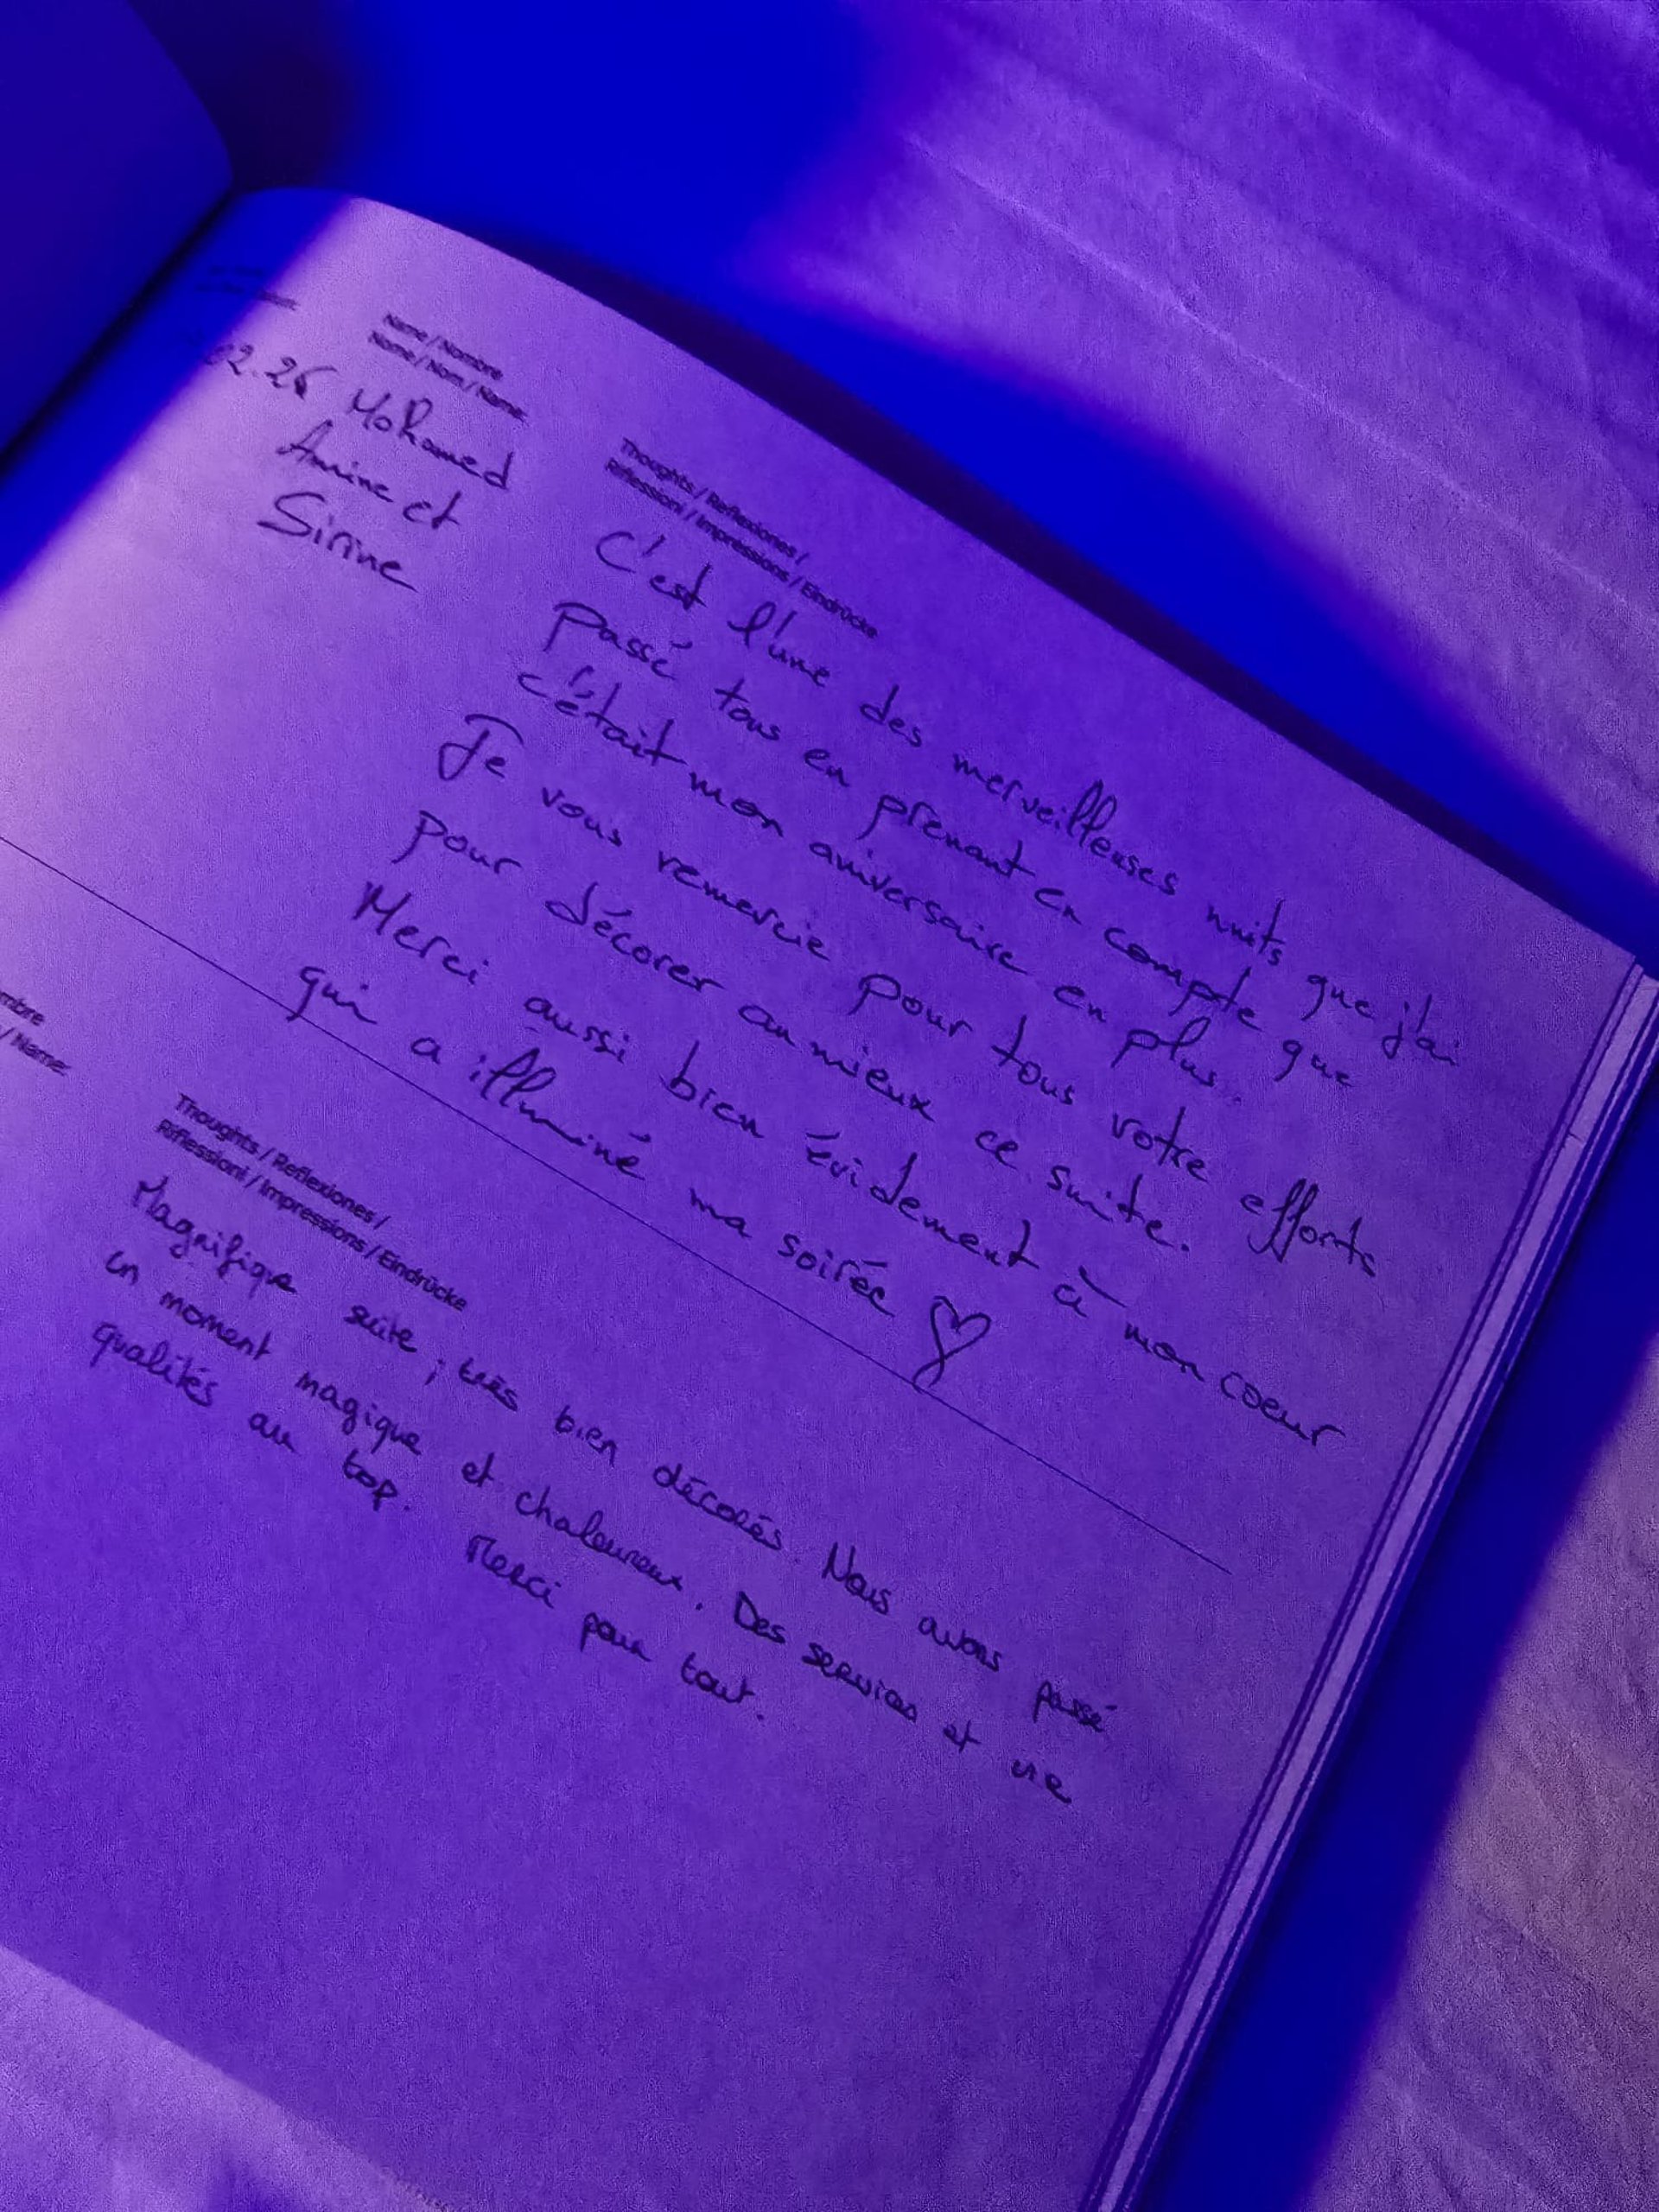 Name / Nombre
Nome / Nom / Name:
02.26 Mohamed
Amine et
Sirine
Thoughts / Reflexiones /
Riflessioni / Impressions / Eindrücke
C'est l'une des merveilleuses nuits que j'ai
Passé tous en prenant en compte que
c'était mon aniversaire en plus.
Je vous remercie pour tous votre efforts
pour décorer au mieux ce suite.
Merci aussi bien évidement à mon coeur
qui a illuminé ma soirée ♡
mbre
/ Name:
Thoughts / Reflexiones /
Riflessioni / Impressions / Eindrücke
Magnifique suite ; très bien décorés. Nous avons passé
un moment magique et chaleureux. Des services et une
qualités au top. Merci pour tout.